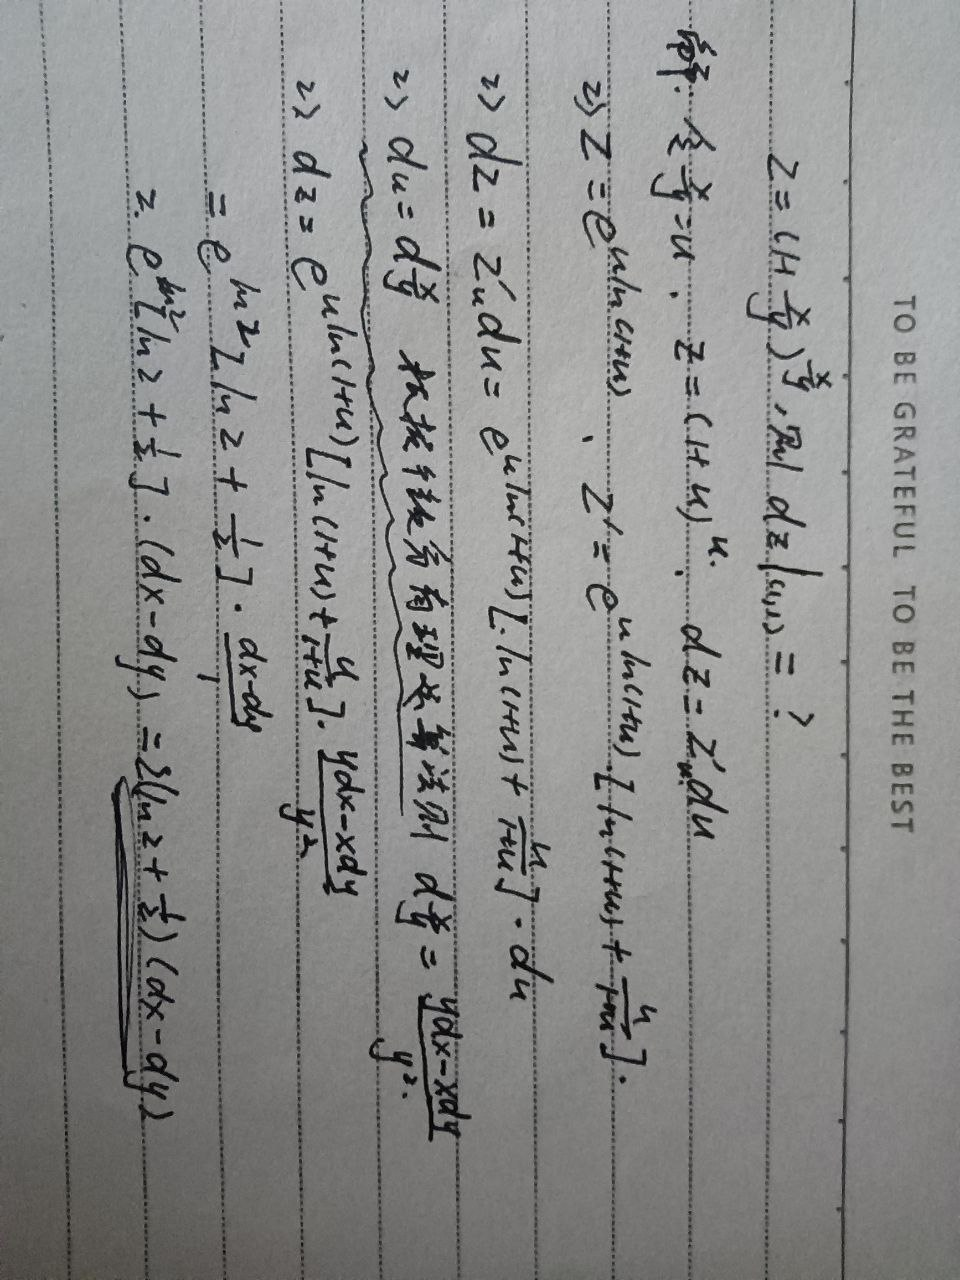 TO BE GRATEFUL TO BE THE BEST
z=(1+x/y)^(x/y),则 dz|(1,1)=?
解:令 x/y=u. z=(1+u)^u. dz=z'u du
=> z=e^(u ln(1+u)). z'=e^(u ln(1+u)).[ln(1+u)+u/(1+u)].
=> dz=z'u du=e^(u ln(1+u))[ln(1+u)+u/(1+u)]·du
=> du=d x/y 根据微分有理运算法则 d x/y=(ydx-xdy)/y².
=> dz=e^(u ln(1+u))[ln(1+u)+u/(1+u)]·(ydx-xdy)/y²
=e^(ln2)[ln2+1/2]·(dx-dy)/1
=e^(ln2)[ln2+1/2]·(dx-dy)=2(ln2+1/2)(dx-dy)